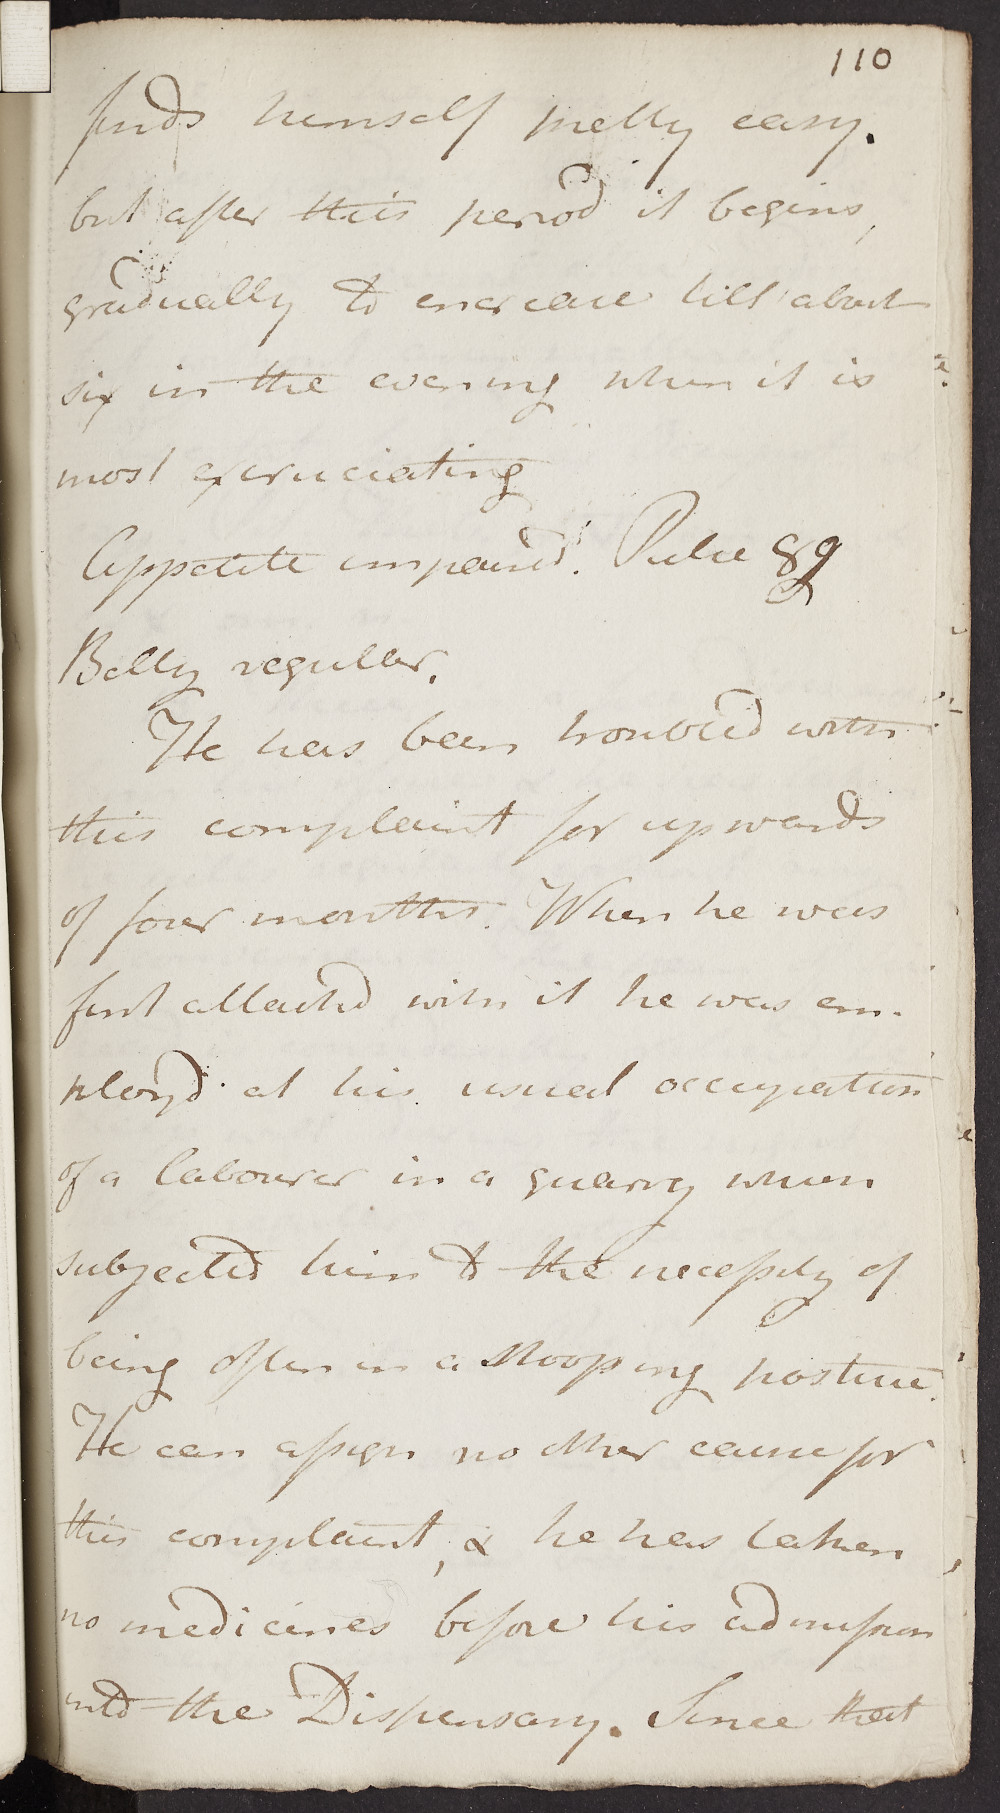 110
finds himself pretty easy.
but after this period it begins,
gradually to encrease till about
six in the evening when it is
most excruciating
Appetite impaired. Pulse 89
Belly regullar.
He has been troubled with
this complaint for upwards
of four months. When he was
first attacked with it he was em-
ployd at his usual occupation
of a labourer in a quarry when
subjected him to the necessity of
being often in a stooping posture.
He can assign no other cause for
this complaint, & he has taken
no medicines before his admission
into the Dispensary. Since that